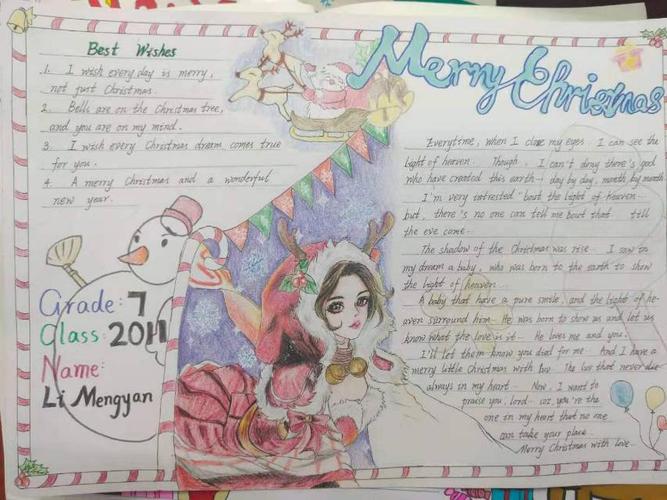 Best Wishes
1. I wish every day is merry,
not just Christmas.
2. Bells are on the Christmas tree,
and you are on my mind.
3. I wish every Christmas dream comes true
for you.
4. A merry Christmas and a wonderful
new year.
Grade: 7
Class: 2011
Name:
Li Mengyan
Merry Christmas
Everytime, when I close my eyes I can see the
light of heaven... Though, I can't deny there's god
who have created this earth - day by day, month by month
I'm very intrested "bout the light of heaven...
but, there's no one can tell me bout that till
the eve come...
The shadow of the Christmas was rise... I saw in
my dream a baby, who was born to the earth to show
the light of heaven...
A baby that have a pure smile, and the light of he-
aven surround him... He was born to show us and let us
know what the love is it... He loves me and you.
I'll let them know you died for me. And I have a
merry little Christmas with luv. The luv that never die
always in my heart... Now, I want to
praise you, lord... coz, you're the
one in my heart that no one
can take your place...
Merry Christmas with love...